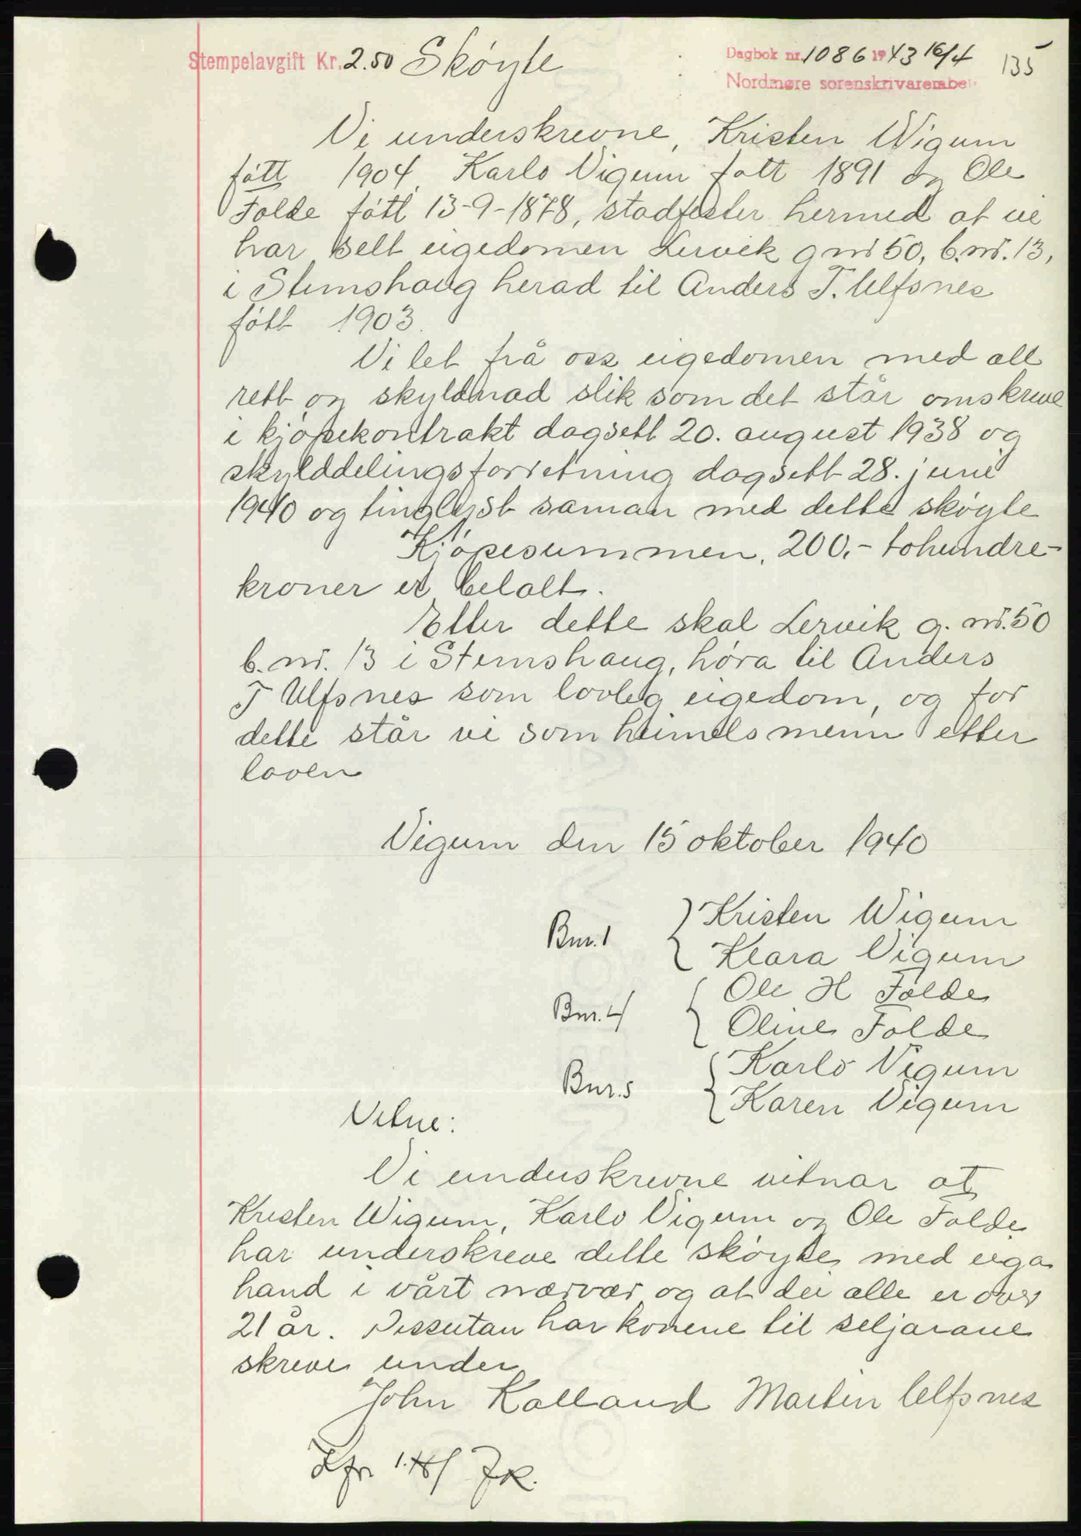 Stempelavgift Kr. 2.50 Skøyte
Dagbok nr. 1086 1943 16/4 135
Nordmøre sorenskrivarembe
Vi underskrevne, Kristen Wigum
fött 1904, Karlo Vigum fött 1891 og Ole
Folde fött 13-9-1878, stadfester hermed at vi
har selt eigedomen Lervik g nr 50, b.nr. 13,
i Stemshaug herad til Anders T. Ulfsnes
fött 1903.
Vi let frå oss eigedomen med all
rett og skyldnad slik som det står omskreve
i kjøpekontrakt dagsett 20. august 1938 og
skylddelingsforretning dagsett 28. juni
1940 og tinglyst saman med dette skøyte
Kjøpesummen, 200,- tohundre-
kroner er betalt.
Etter dette skal Lervik g. nr. 50
b. nr. 13 i Stemshaug, høra til Anders
T Ulfsnes som lovleg eigedom, og for
dette står vi som heimelsmenn etter
loven
Vigum den 15 oktober 1940
Bnr. 1 { Kristen Wigum
Klara Vigum
Bnr. 4 { Ole H Folde
Oline Folde
Bnr. 5 { Karlo Vigum
Karen Vigum
Vitne:
Vi underskrevne vitnar at
Kristen Wigum, Karlo Vigum og Ole Folde
har underskreve dette skøyte med eiga
hand i vårt nærvær og at dei alle er over
21 år. Dessutan har konene til seljarane
skreve under
John Kalland Martin Ulfsnes